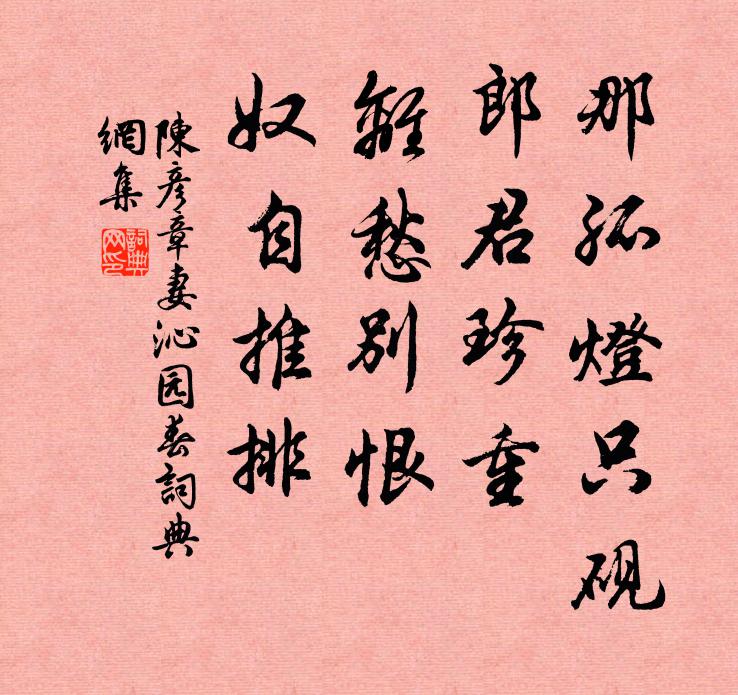 那孤燈只硯
郎君珍重
離愁別恨
奴自推排
陳彦章妻沁园春詞典
網集
詞典
网印